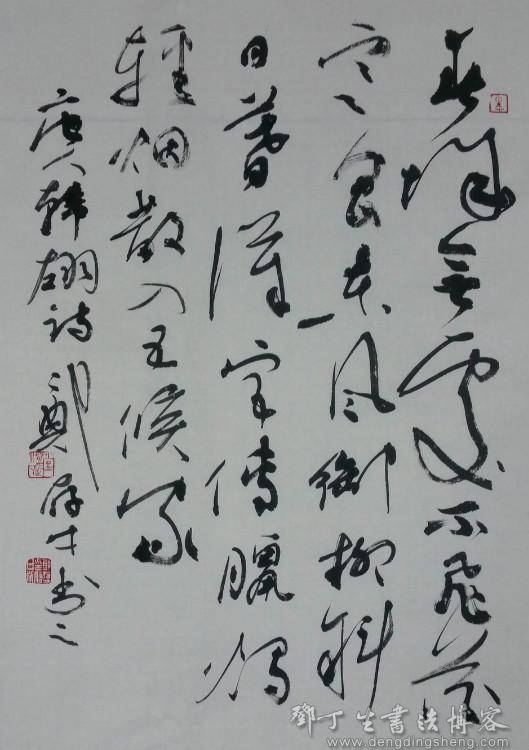 春城無處不飛花
寒食東風御柳斜
日暮漢宮傳臘燭
輕烟散入五侯家
唐人韓翃詩 鄭 書之
鄧丁生書法博客
www.dengdingsheng.com